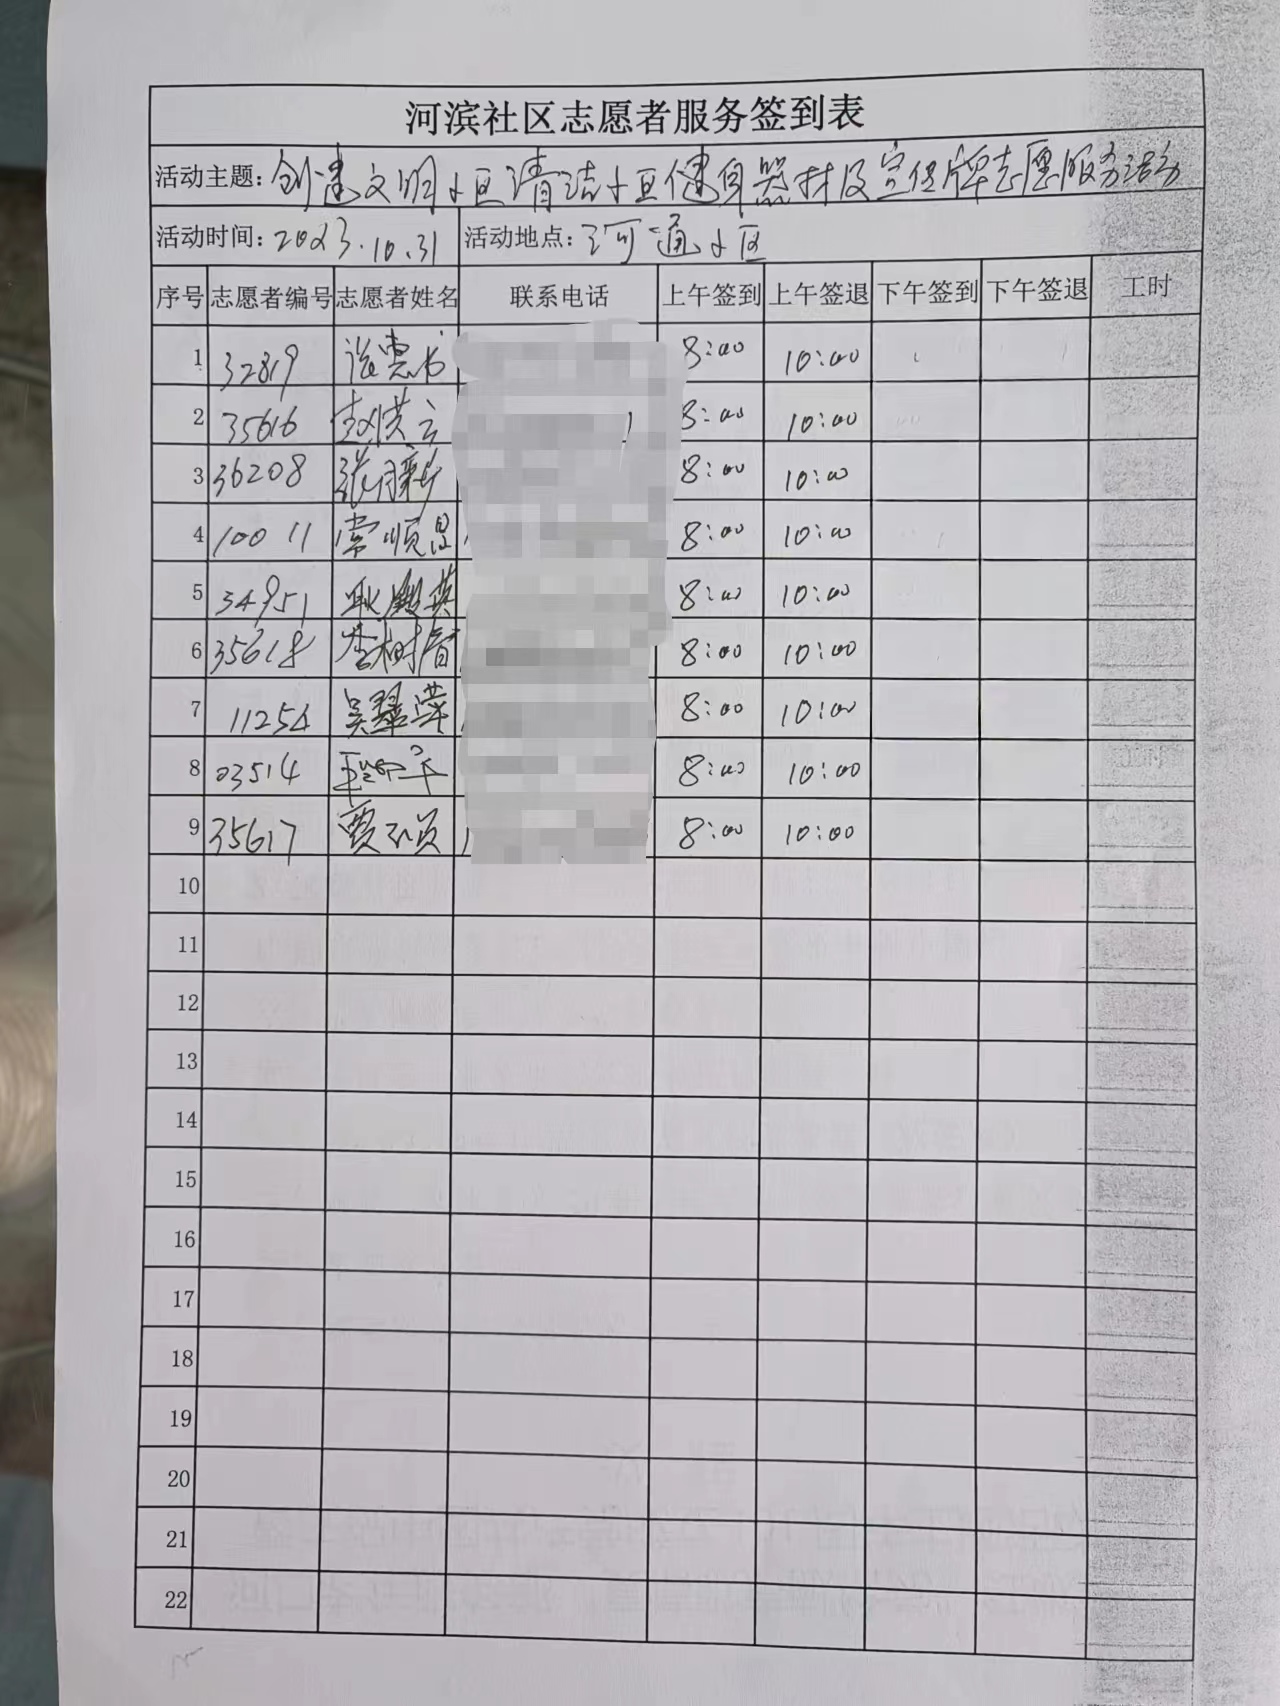 河滨社区志愿者服务签到表
活动主题：创建文明小区清洁小区健身器材及宣传牌志愿服务活动
活动时间：2023.10.31 活动地点：河通小区
序号 志愿者编号 志愿者姓名 联系电话 上午签到 上午签退 下午签到 下午签退 工时
1 32819 8:00 10:00
2 35616 赵洪云 8:00 10:00
3 36208 8:00 10:00
4 10011 常顺昌 8:00 10:00
5 34951 8:00 10:00
6 35618 李树春 8:00 10:00
7 11254 吴翠萍 8:00 10:00
8 03514 8:00 10:00
9 35617 8:00 10:00
10
11
12
13
14
15
16
17
18
19
20
21
22